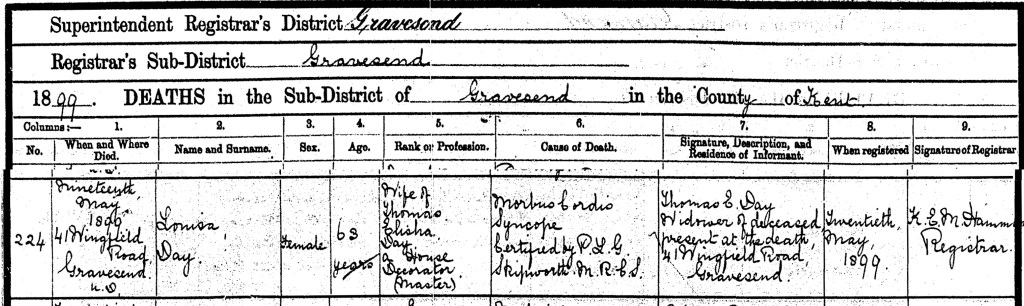 Superintendent Registrar's District Gravesend
Registrar's Sub-District Gravesend
1899. DEATHS in the Sub-District of Gravesend in the County of Kent.
Columns:— 1. 2. 3. 4. 5. 6. 7. 8. 9.
No. When and Where Died. Name and Surname. Sex. Age. Rank or Profession. Cause of Death. Signature, Description, and Residence of Informant. When registered Signature of Registrar
224
Nineteenth
May
1899
41 Wingfield
Road,
Gravesend.
U.D
Louisa
Day.
Female
68
years
Wife of
Thomas
Elisha
Day
a House
Decorator
(Master)
Morbus Cordis
Syncope
Certified by P. L. G
Skipworth M.R.C.S.
Thomas E. Day
Widower of deceased
present at the death,
41 Wingfield Road,
Gravesend.
Twentieth,
May,
1899.
K. E. M.
Registrar.